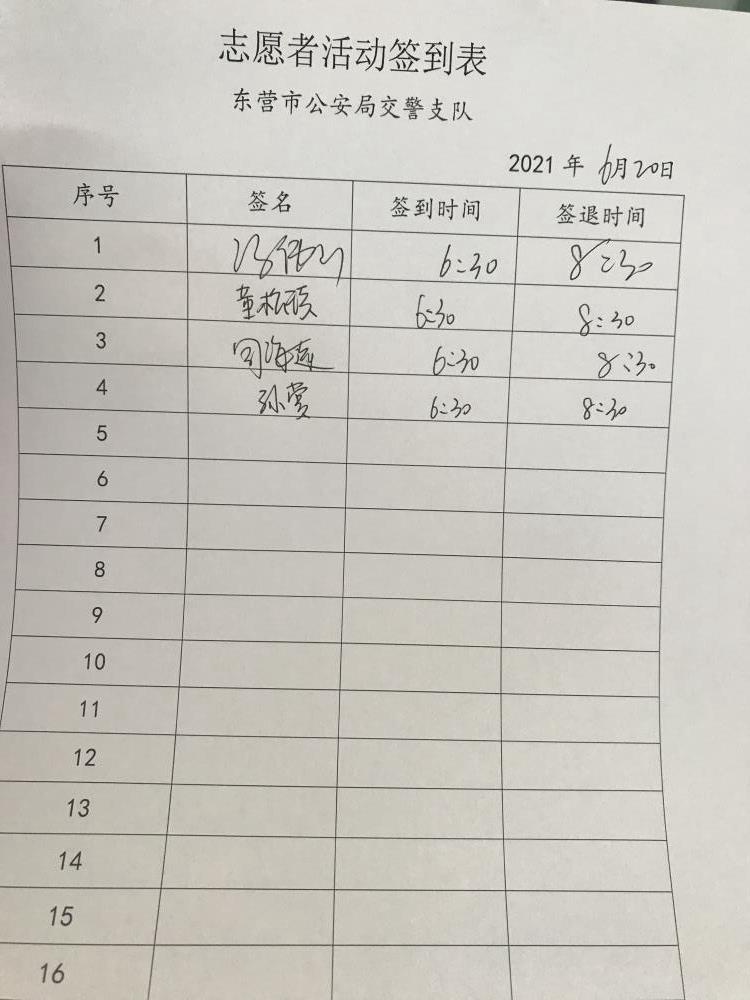 志愿者活动签到表
东营市公安局交警支队
2021 年 6月20日
序号 签名 签到时间 签退时间
1 6:30 8:30
2 董松硕 6:30 8:30
3 司海莲 6:30 8:30
4 孙赏 6:30 8:30
5
6
7
8
9
10
11
12
13
14
15
16